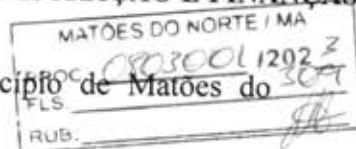 MATÕES DO NORTE / MA
PROC. 0803001 / 202 3
cípio de Matões do
FLS. 309
RUB.